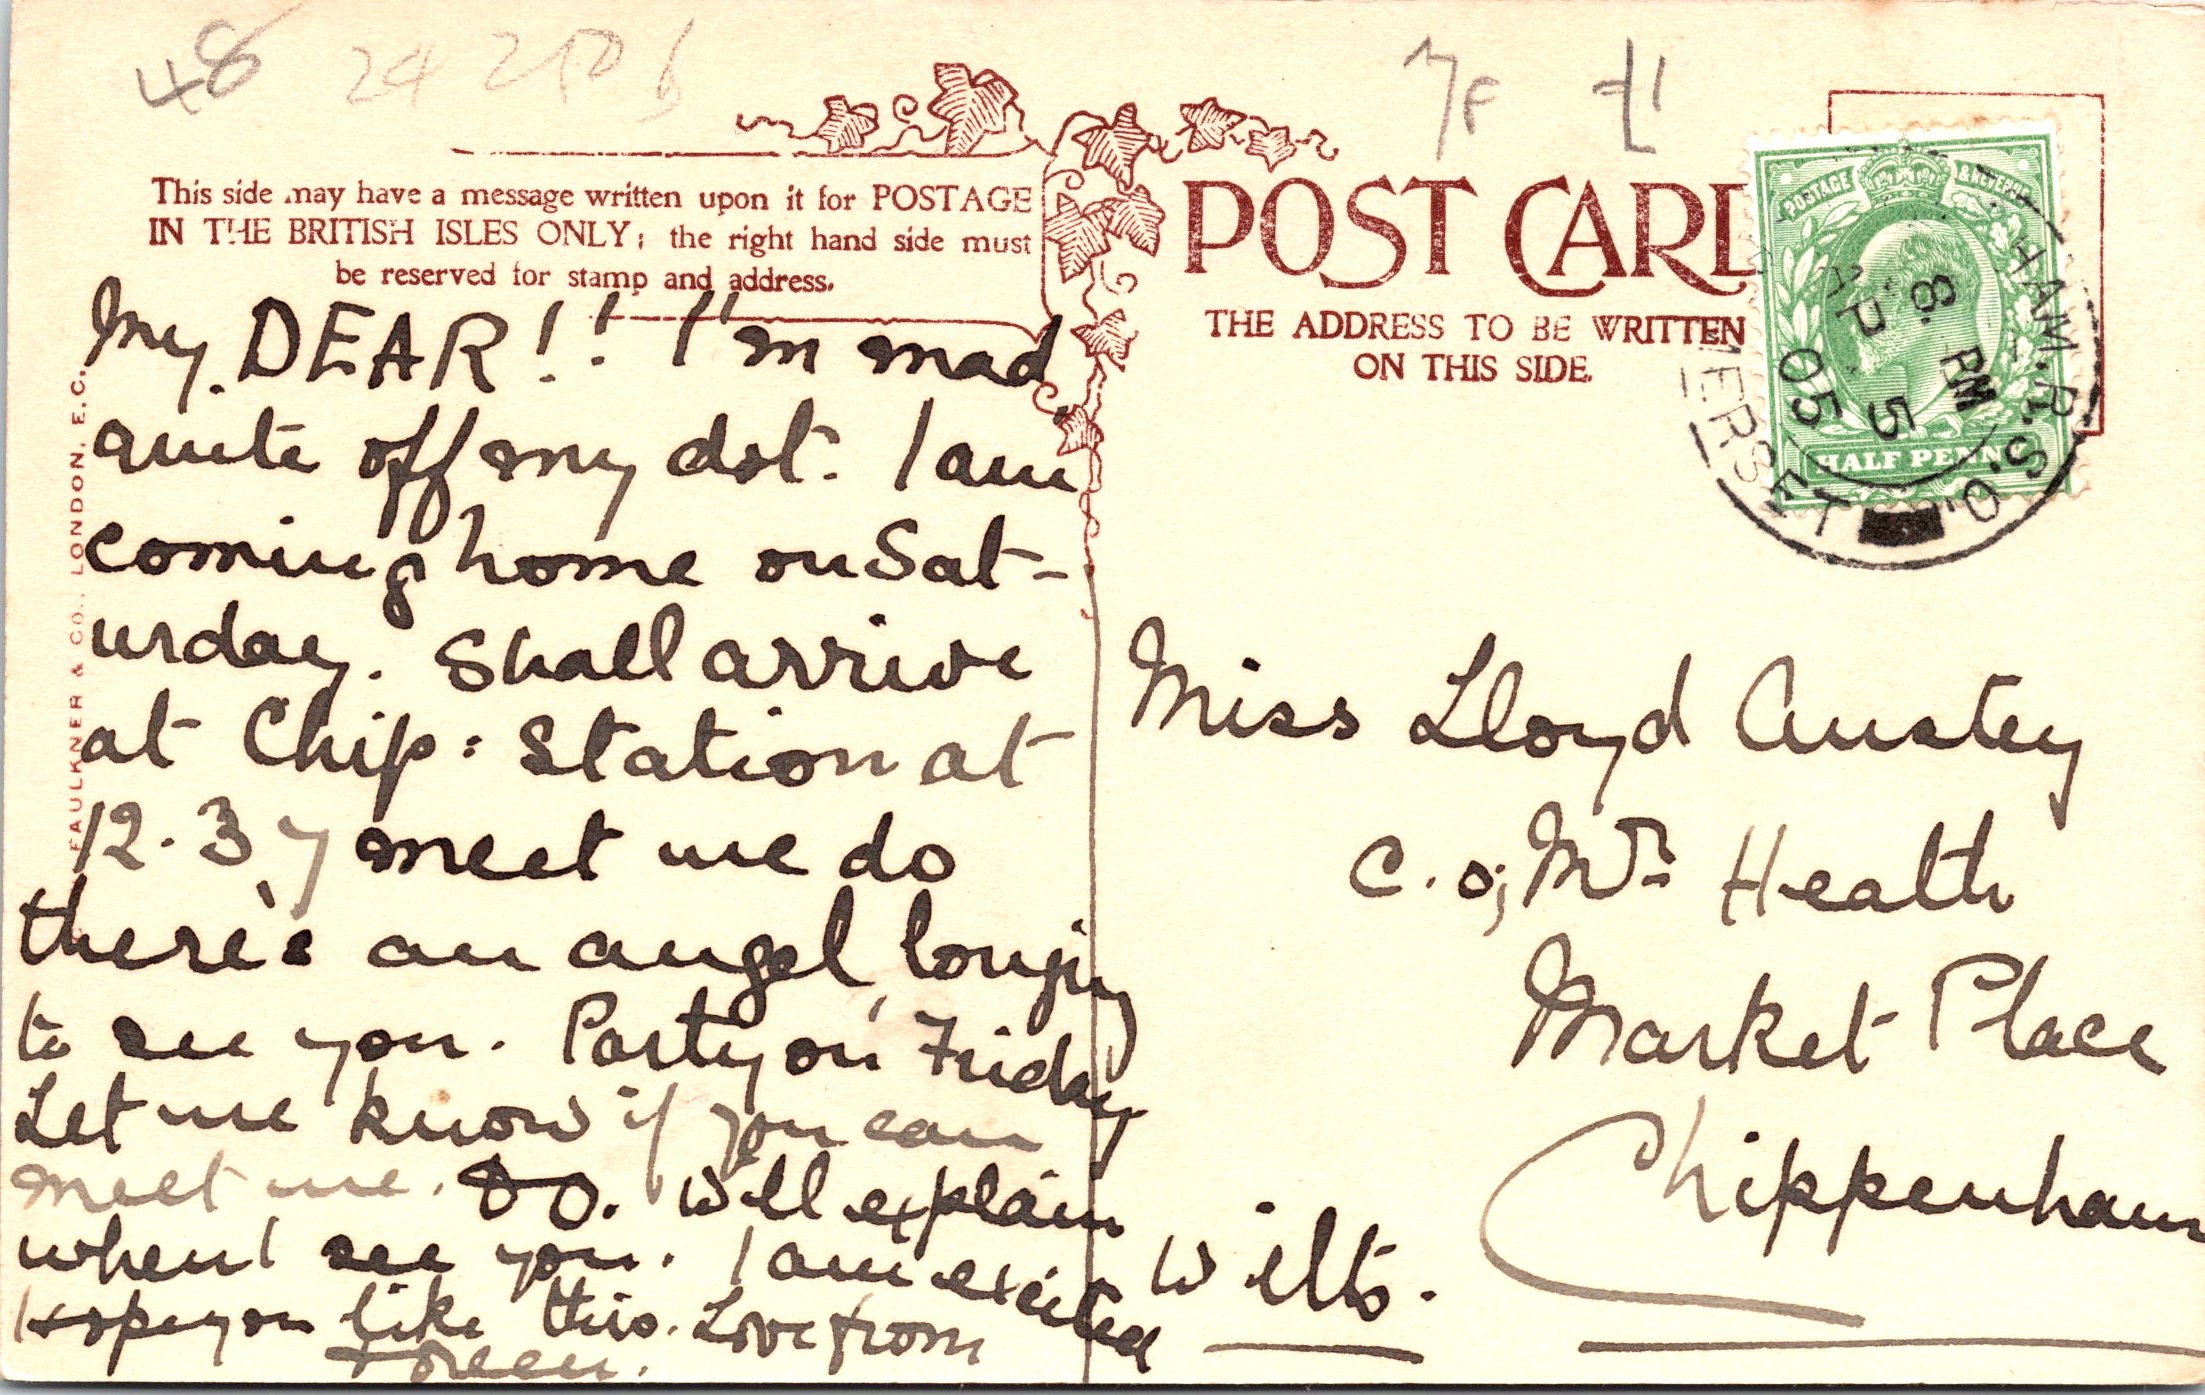 48 24
7F £1
This side may have a message written upon it for POSTAGE
IN THE BRITISH ISLES ONLY; the right hand side must
be reserved for stamp and address.
My DEAR!! I'm mad
quite off my dot. I am
coming home on Sat-
urday. Shall arrive
at Chip: Station at
12.37 meet me do
there's an angel, longing
to see you. Party on Friday
Let me know if you can
meet me. DO. Will explain
when I see you. I am excited
Hope you like this. Love from
FAULKNER & CO., LONDON, E.C.
POST CARD
THE ADDRESS TO BE WRITTEN
ON THIS SIDE.
POSTAGE & REVENUE
HALF PENNY
HAM.R.S.O.
8. PM
AP 5
05
SOMERSET
Miss Lloyd Anstey
c.o; Mr. Heath
Market Place
Chippenham
Wilts.